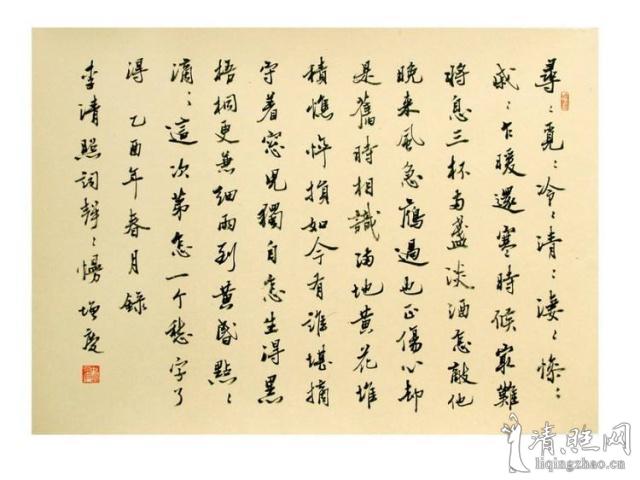 尋〻覓〻冷〻清〻凄〻惨〻
戚〻乍暖還寒時候最難
將息三杯两盞淡酒怎敵他
晚来風急雁過也正傷心却
是舊時相識满地黄花堆
積憔悴損如今有誰堪摘
守着窓児獨自怎生得黑
梧桐更兼細雨到黄昏點〻
滴〻這次第怎一个愁字了
得 乙酉年春月錄
李清照詞聲〻慢 增慶
清照网
liqingzhao.cn